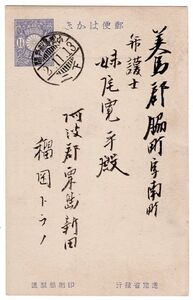 郵便はかき
美馬郡脇町字南町
弁護士
妹尾寛平殿
阿波郡粟島新田
福岡トラノ
印刷局製造
逓信省発行